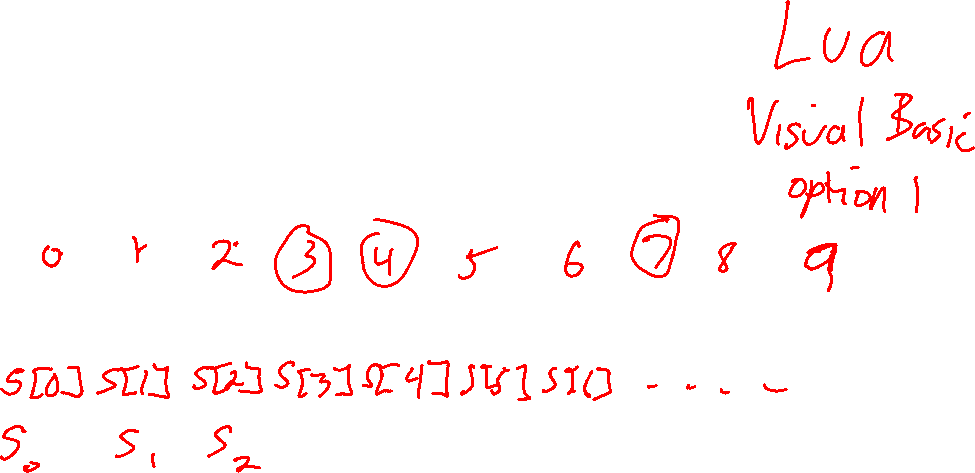 Lua
Visual Basic
option 1
0 1 2 3 4 5 6 7 8 9
S[0] S[1] S[2] S[3] S[4] S[5] S[6] .....
S₀ S₁ S₂